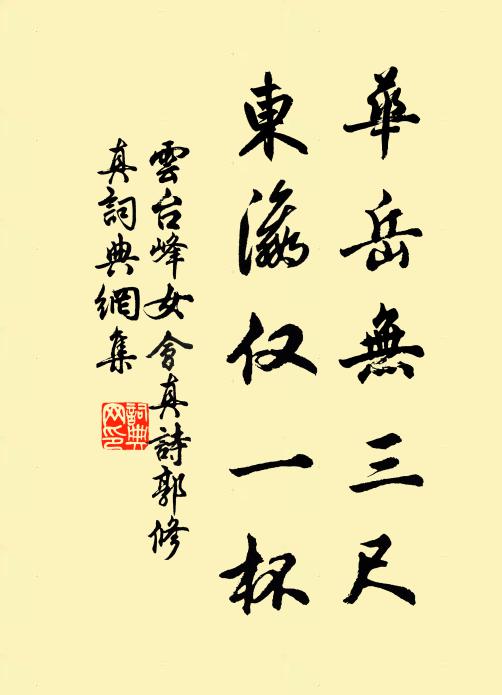 華岳無三尺
東瀛仅一杯
雲台峰女會真詩郭修
真詞典網集
詞典
网印